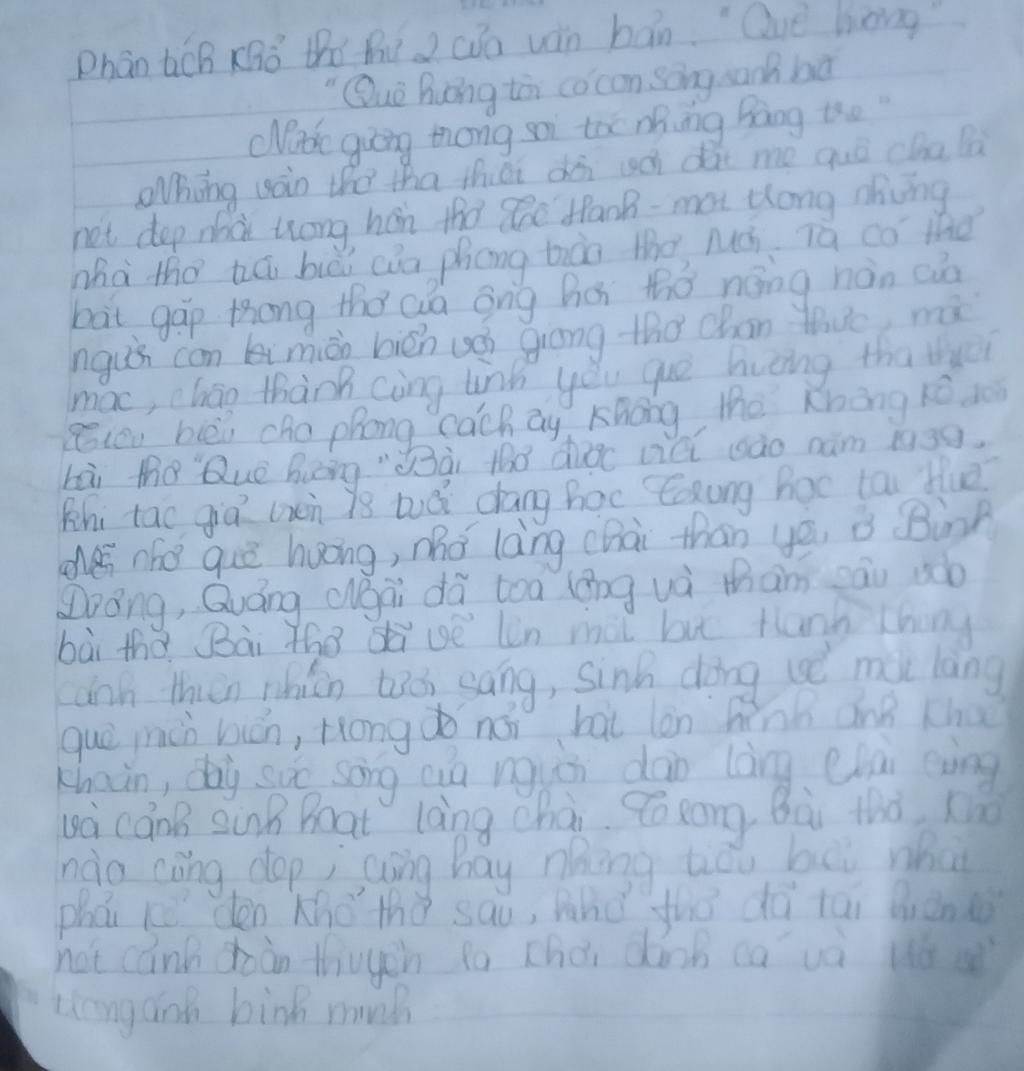 Phân tích khổ thơ thứ 2 của văn bản "Quê hương"
"Quê hương tôi có con sông xanh biếc
Nước gương trong soi tóc những hàng tre"
Những vần thơ tha thiết đối với đất mẹ quê cha là
nét đẹp nhất trong hồn thơ Tế Hanh - một trong những
nhà thơ tiêu biểu của phong trào thơ Mới. Ta có thể
bắt gặp trong thơ của ông hơi thở nồng nàn của
người con miền biển với giọng thơ chân thực, mộc
mạc, chân thành cùng tình yêu quê hương tha thiết
Tiêu biểu cho phong cách ấy không thể không kể đến
bài thơ "Quê hương". Bài thơ được viết vào năm 1939.
Khi tác giả 18 tuổi đang học Trung học tại Huế
nhớ quê hương, nhớ làng chài thân yêu ở Bình
Dương, Quảng Ngãi đã toả rộng và thấm sâu vào
bài thơ. Bài thơ đã vẽ lên một bức tranh
cảnh thiên nhiên tươi sáng, sinh động về một làng
quê miền biển, trong đó nổi bật lên hình ảnh khoẻ
khoắn, đầy sức sống của người dân làng chài cùng
và cảnh sinh hoạt làng chài. Trong bài thơ, khổ
nào cũng đẹp, cũng hay nhưng tiêu biểu nhất
phải kể đến khổ thơ sau, khổ thơ đã tái hiện rõ
nét cảnh đoàn thuyền ra khơi đánh cá và
trong ánh bình minh